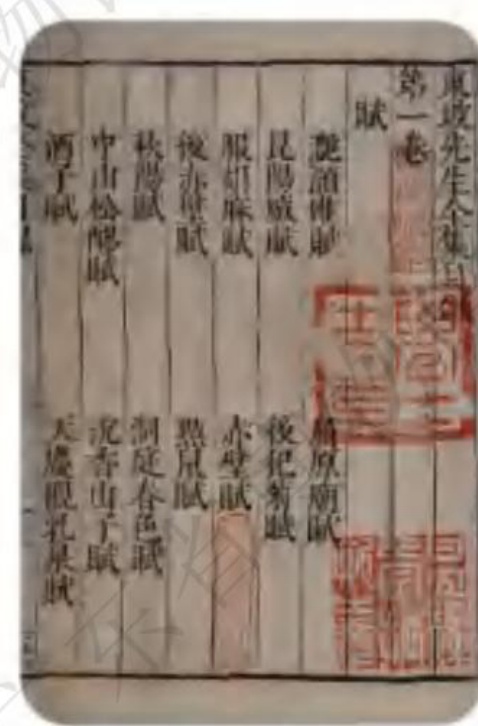 東坡先生全集目
第一卷
賦
灩澦堆賦 屈原廟賦
昆陽城賦 後杞菊賦
服胡麻賦 赤壁賦
後赤壁賦 黠鼠賦
秋陽賦 洞庭春色賦
中山松醪賦 沉香山子賦
酒子賦 天慶觀乳泉賦